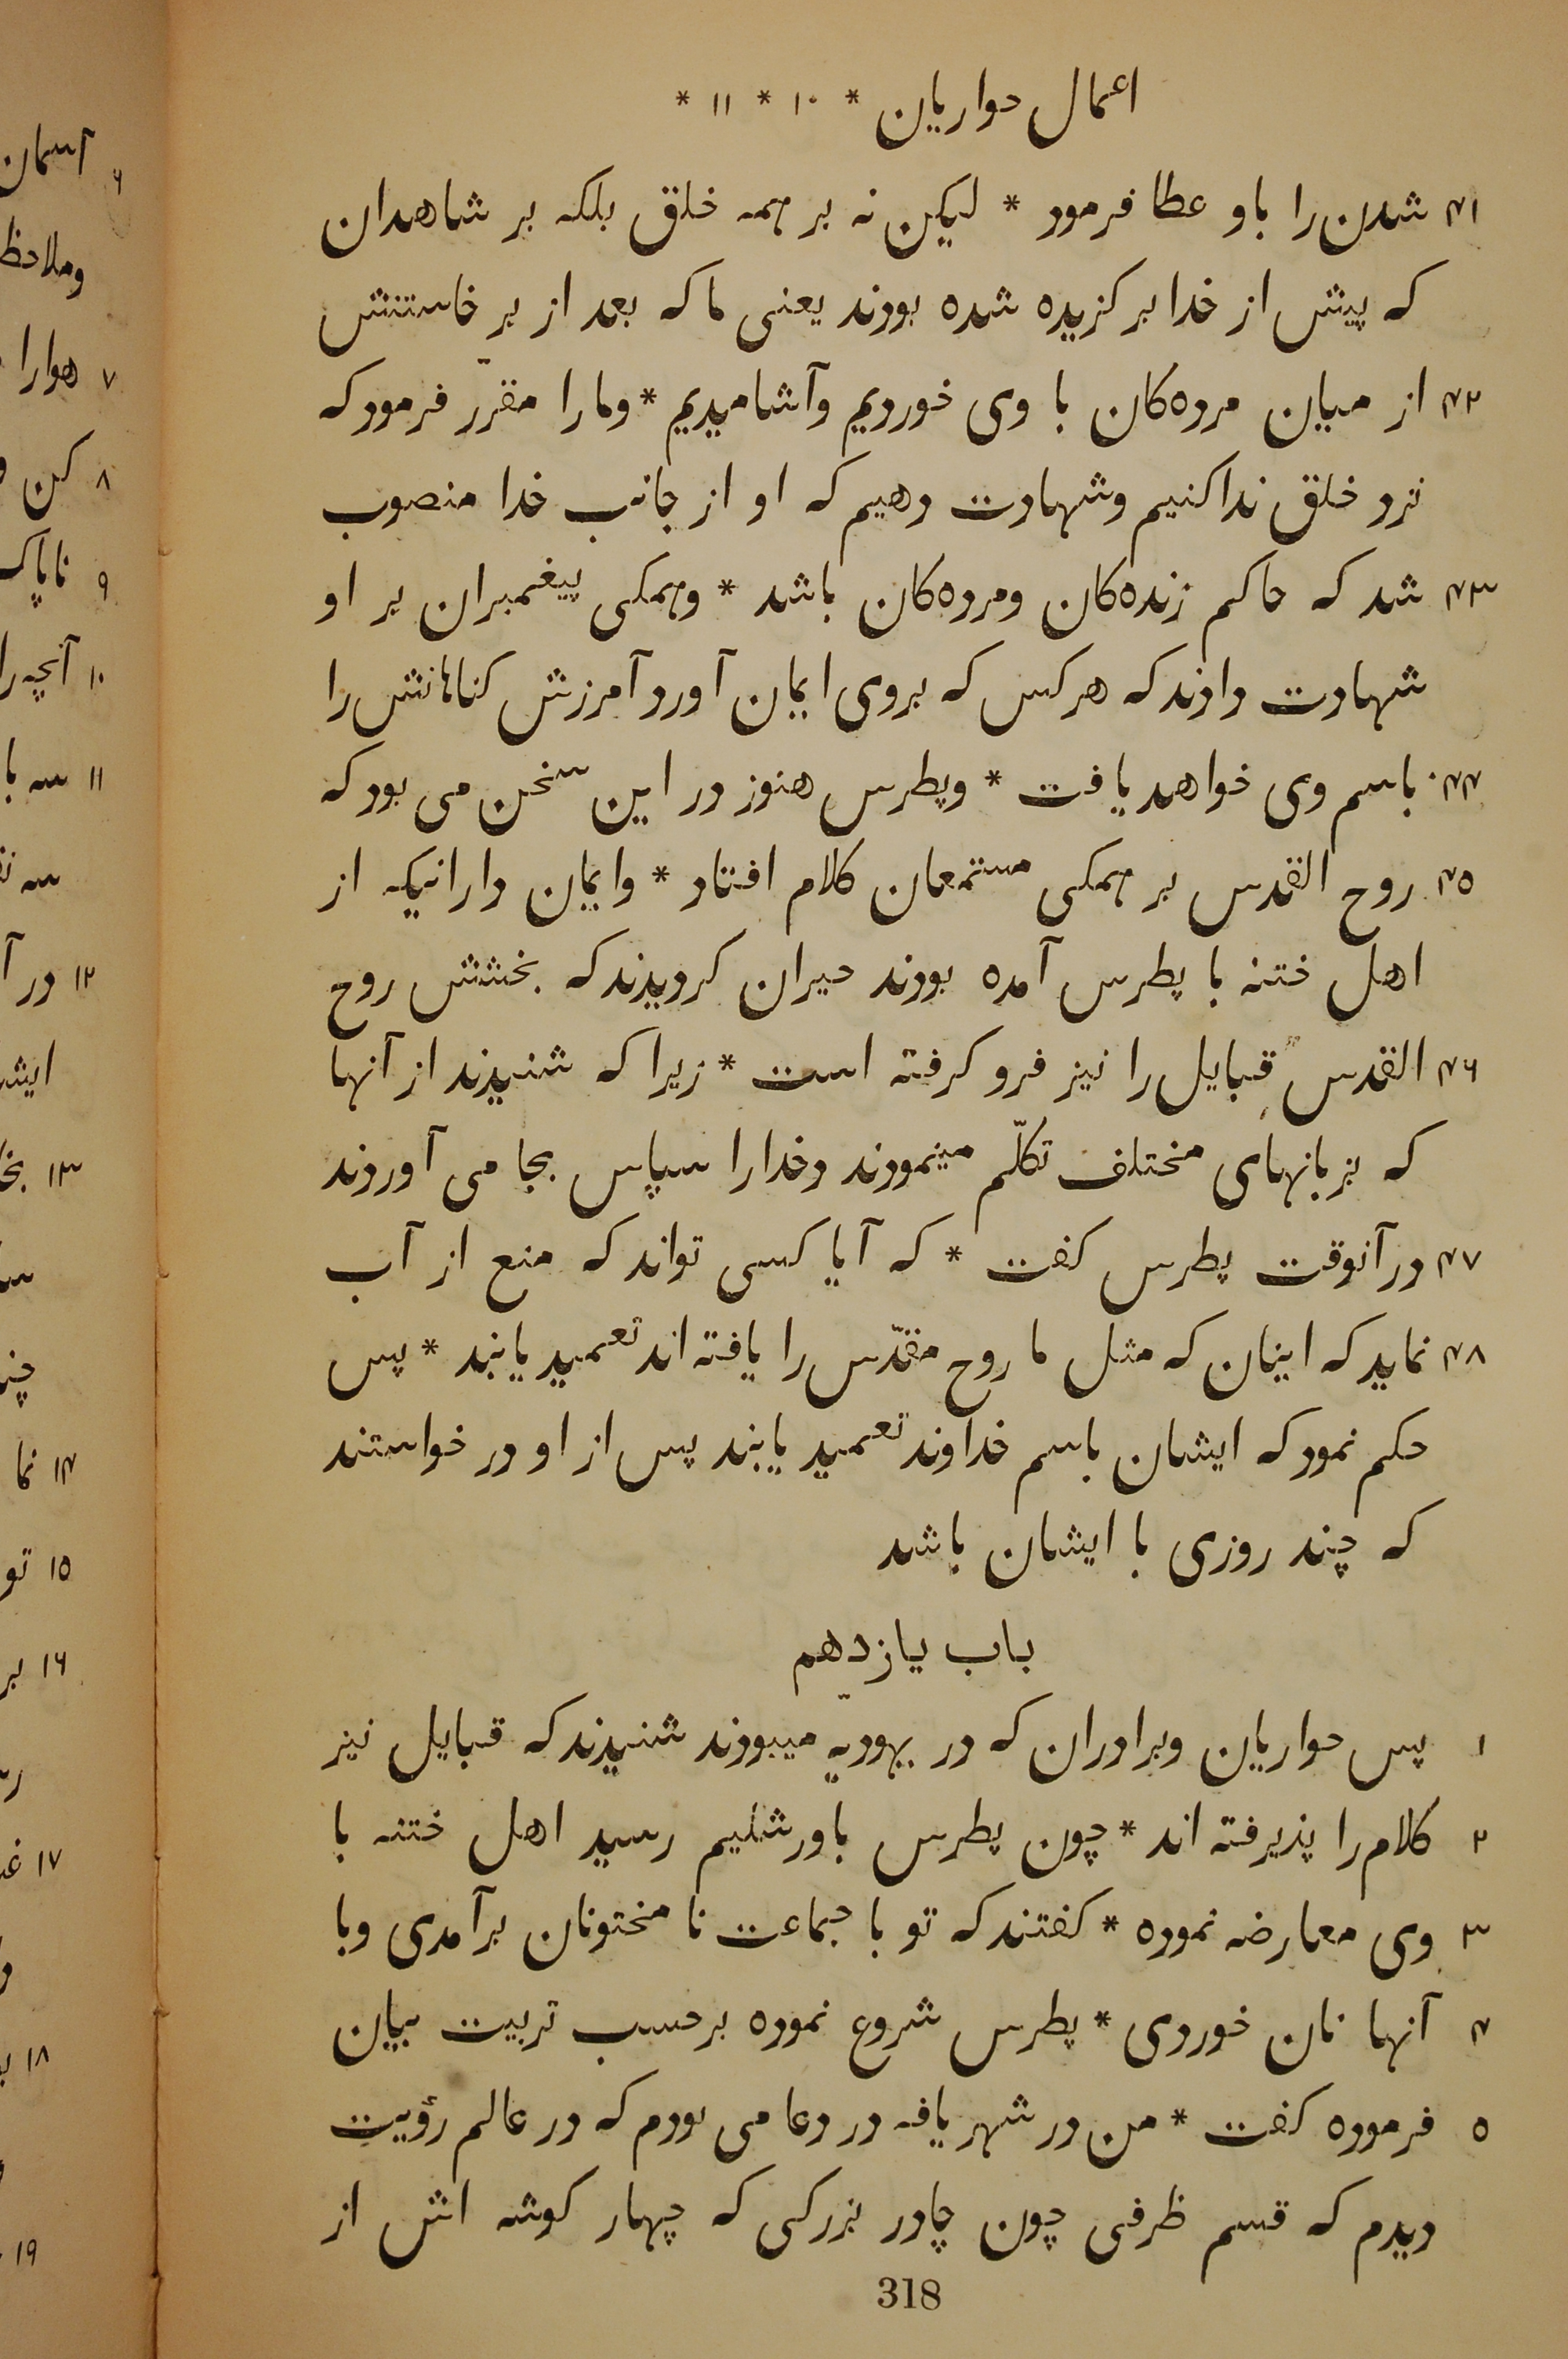 اعمال حواریان * ۱۰ * ۱۱ *
۴۱ شدن را باو عطا فرمود * لیکن نه بر همه خلق بلکه بر شاهدان
که پیش از خدا برکزیده شده بودند یعنی ما که بعد از بر خاستنش
۴۲ از میان مرده‌کان با وی خوردیم وآشامیدیم * وما را مقرّر فرمود که
نزد خلق ندا کنیم وشهادت دهیم که او از جانب خدا منصوب
۴۳ شد که حاکم زنده‌کان ومرده‌کان باشد * وهمکی پیغمبران بر او
شهادت دادند که هر کس که بر وی ایمان آورد آمرزش کناهانش را
۴۴ باسم وی خواهد یافت * وپطرس هنوز در این سخن می بود که
۴۵ روح القدس بر همکی مستمعان کلام افتاد * وایمان دارانیکه از
اهل ختنه با پطرس آمده بودند حیران کردیدند که بخشش روح
۴۶ القدس قبایل را نیز فرو کرفته است * زیرا که شنیدند از آنها
که بزبانهای مختلف تکلّم مینمودند وخدا را سپاس بجا می آوردند
۴۷ در آنوقت پطرس کفت * که آیا کسی تواند که منع از آب
۴۸ نماید که اینان که مثل ما روح مقدّس را یافته اند تعمید یابند * پس
حکم نمود که ایشان باسم خداوند تعمید یابند پس از او در خواستند
که چند روزی با ایشان باشد
باب یازدهم
۱ پس حواریان وبرادران که در یهودیّه میبودند شنیدند که قبایل نیز
۲ کلام را پذیرفته اند * چون پطرس باورشلیم رسید اهل ختنه با
۳ وی معارضه نموده * کفتند که تو با جماعت نا مختونان بر آمدی وبا
۴ آنها نان خوردی * پطرس شروع نموده بر حسب تربیت بیان
۵ فرموده کفت * من در شهر یافه در دعا می بودم که در عالم رؤیت
دیدم که قسم ظرفی چون چادر بزرکی که چهار کوشه اش از
318
۶ آسمان
وملاحظ
۷ هوا را
۸ کن و
۹ ناپاک
۱۰ آنچه را
۱۱ سه با
۱۲ در آ
۱۳
۱۴ نما
۱۵ تو
۱۶ بر
۱۷
۱۸
۱۹